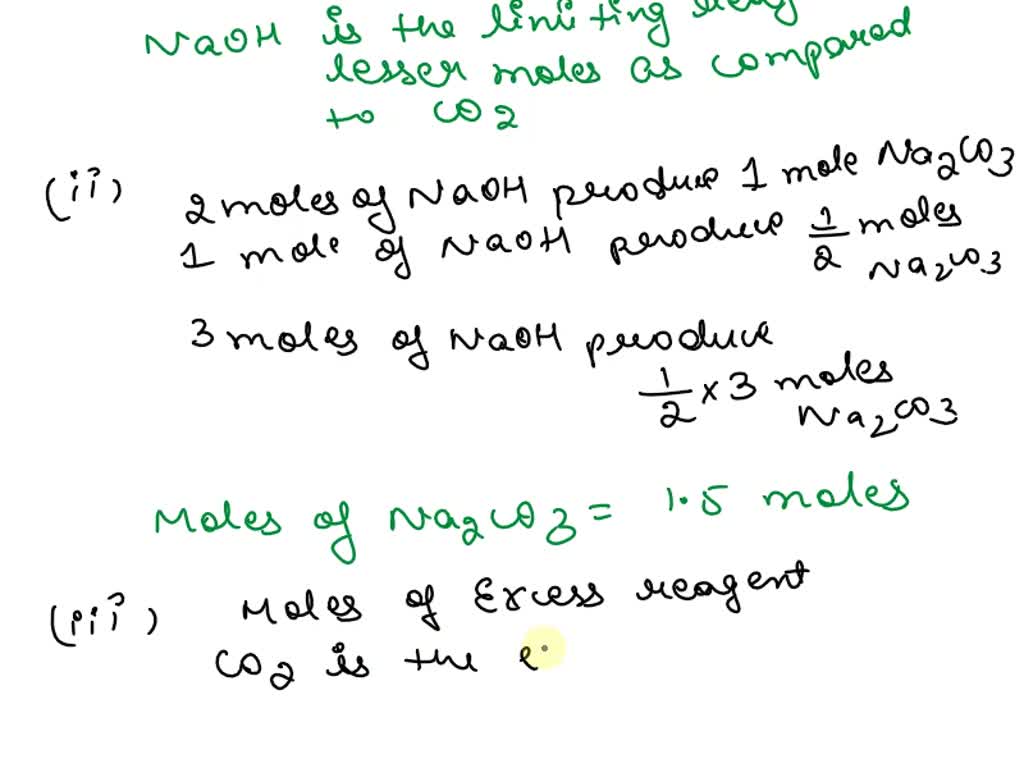 NaOH is the limiting
lesser moles as compared
to CO2
(ii) 2 moles of NaOH produce 1 mole Na2CO3
1 mole of NaOH produce 1/2 moles
Na2CO3
3 moles of NaOH produce
1/2 x 3 moles
Na2CO3
Moles of Na2CO3 = 1.5 moles
(iii) Moles of Excess reagent
CO2 is the e